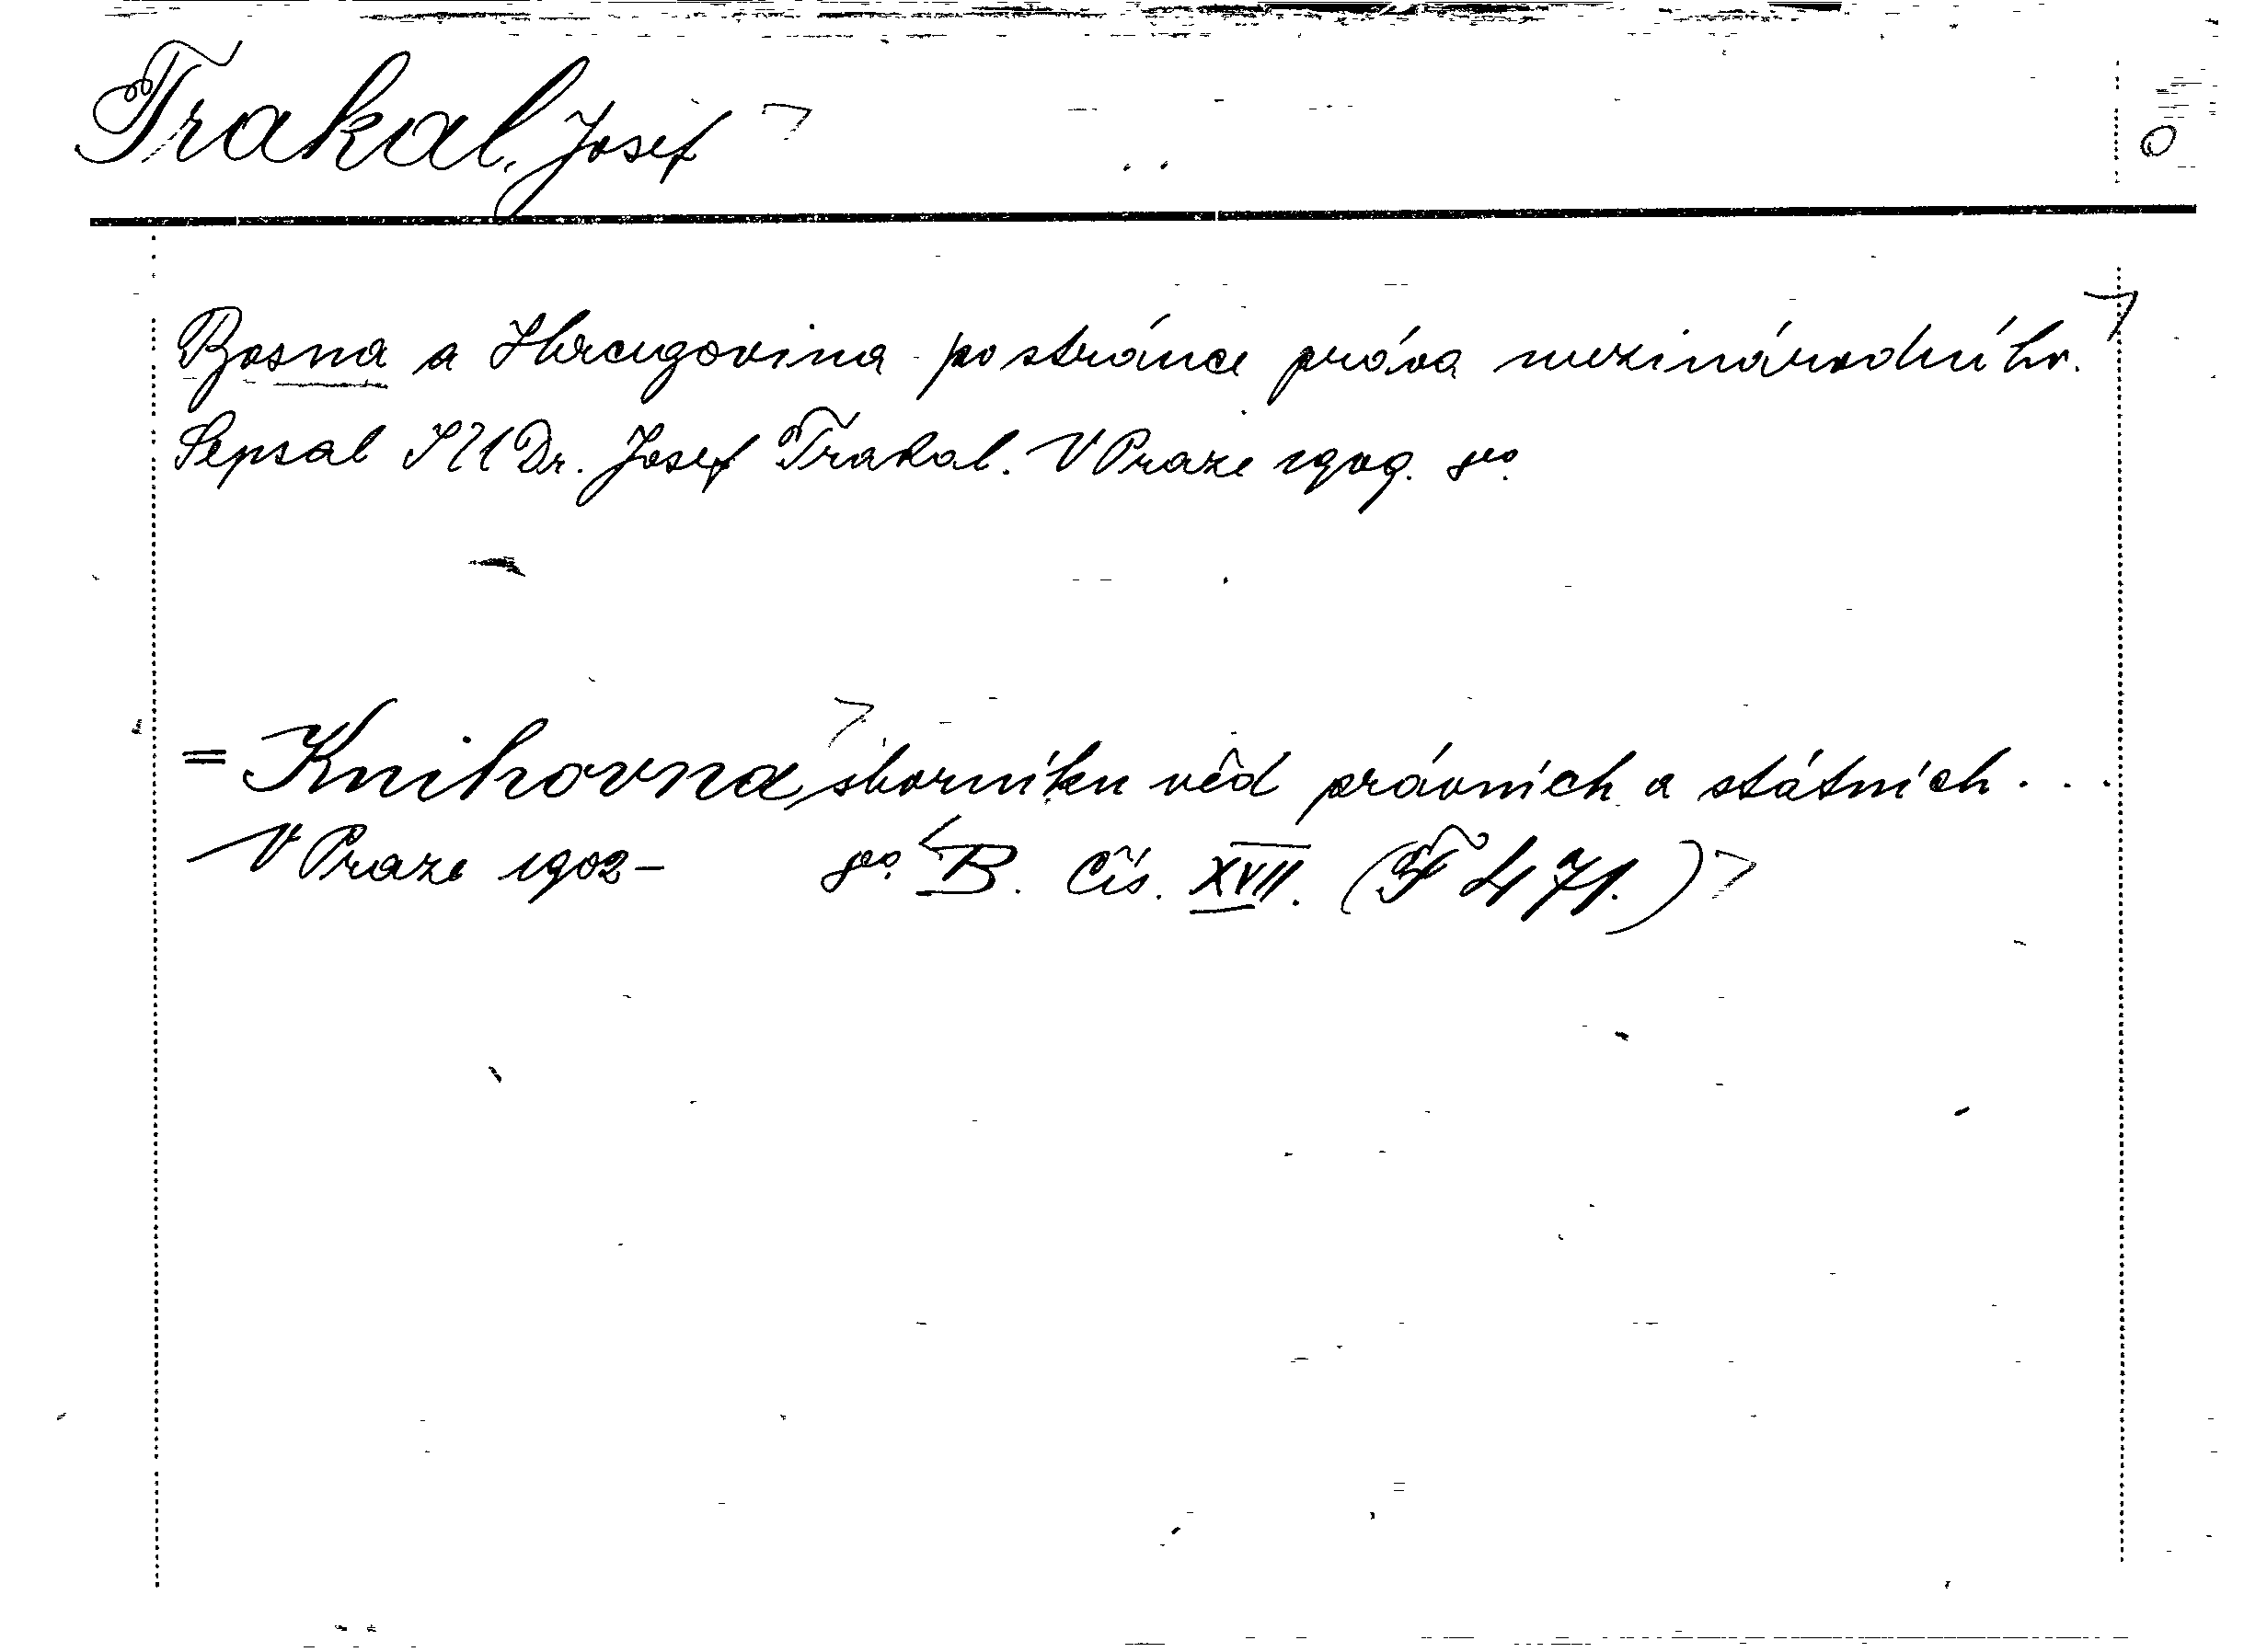 Trakal, Josef O
Bosna a Hercegovina po stránce práva mezinárodního.
Sepsal JUDr. Josef Trakal. V Praze 1909. 8°.
= Knihovna sborníku věd právních a státních...
V Praze 1902- 8°. B. Čís. XVII. (F 471.)